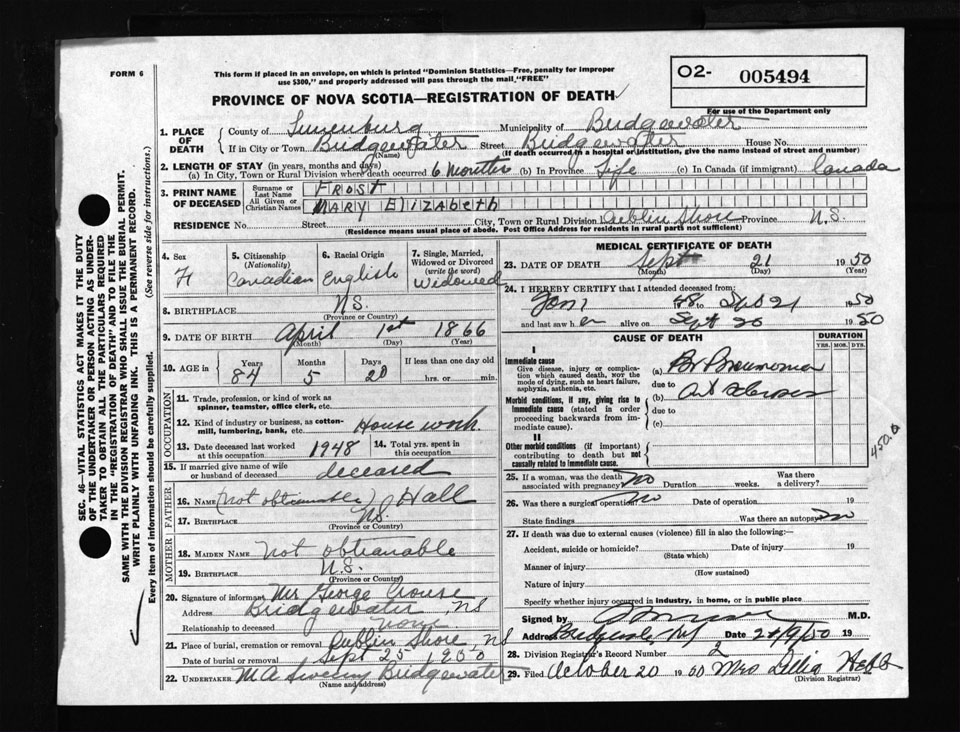 FORM 6
This form if placed in an envelope, on which is printed "Dominion Statistics—Free, penalty for improper
use $300," and properly addressed will pass through the mail, "FREE"
O2- 005494
PROVINCE OF NOVA SCOTIA—REGISTRATION OF DEATH
For use of the Department only
1. PLACE OF DEATH
County of Lunenburg Municipality of Bridgewater
If in City or Town Bridgewater Street Bridgewater House No.
(Name) (If death occurred in a hospital or institution, give the name instead of street and number)
2. LENGTH OF STAY (in years, months and days)
(a) In City, Town or Rural Division where death occurred 6 Months (b) In Province Life (c) In Canada (if immigrant) Canada
3. PRINT NAME OF DECEASED
Surname or Last Name FROST
All Given or Christian Names MARY ElizAbeth
RESIDENCE No. Street City, Town or Rural Division Dublin Shore Province N.S.
(Residence means usual place of abode. Post Office Address for residents in rural parts not sufficient)
4. Sex F
5. Citizenship (Nationality) Canadian
6. Racial Origin English
7. Single, Married, Widowed or Divorced (write the word) Widowed
8. BIRTHPLACE NS.
(Province or Country)
9. DATE OF BIRTH April 1st 1866
(Month) (Day) (Year)
10. AGE in Years Months Days If less than one day old
84 5 20 hrs. or min.
OCCUPATION
11. Trade, profession, or kind of work as
spinner, teamster, office clerk, etc.
12. Kind of industry or business, as cotton-
mill, lumbering, bank, etc. House work.
13. Date deceased last worked at this occupation 1948
14. Total yrs. spent in this occupation
15. If married give name of wife
or husband of deceased deceased
FATHER
16. Name (not obtainable) Hall
17. Birthplace NS.
(Province or Country)
MOTHER
18. MAIDEN NAME not obtianable
19. BIRTHPLACE N.S.
(Province or Country)
20. Signature of informant Mr George Crouse
Address Bridgewater, NS
Relationship to deceased none
21. Place of burial, cremation or removal Dublin Shore NS
Date of burial or removal Sept 25 1950
22. UNDERTAKER M A Sweeny Bridgewater
(Name and address)
MEDICAL CERTIFICATE OF DEATH
23. DATE OF DEATH Sept 21 1950
(Month) (Day) (Year)
24. I HEREBY CERTIFY that I attended deceased from:
48 to Sept 21 1950
and last saw h er alive on Sept 20 1950
CAUSE OF DEATH
DURATION
YRS. MOS. DYS.
I
Immediate cause
Give disease, injury or complica-
tion which caused death, NOR the
mode of dying, such as heart failure,
asphyxia, asthenia, etc.
(a) Br Pneumonia
due to
Morbid conditions, if any, giving rise to
immediate cause (stated in order
proceeding backwards from im-
mediate cause).
(b)
due to
(c)
II
Other morbid conditions (if important)
contributing to death but not
causally related to immediate cause.
450.0
25. If a woman, was the death associated with pregnancy? no Duration weeks. Was there a delivery?
26. Was there a surgical operation no Date of operation 19
State findings Was there an autopsy no
27. If death was due to external causes (violence) fill in also the following:—
Accident, suicide or homicide? Date of injury 19
(State which)
Manner of injury
(How sustained)
Nature of injury
Specify whether injury occurred in industry, in home, or in public place
Signed by M.D.
Address Bridgewater NS Date 24/9/50 19
28. Division Registrar's Record Number 2
29. Filed October 20 1950 Mrs Lillia Hebb
(Division Registrar)
SEC. 46—VITAL STATISTICS ACT MAKES IT THE DUTY
OF THE UNDERTAKER OR PERSON ACTING AS UNDER-
TAKER TO OBTAIN ALL THE PARTICULARS REQUIRED
IN THE "REGISTRATION OF DEATH" AND TO FILE THE
SAME WITH THE DIVISION REGISTRAR WHO SHALL ISSUE THE BURIAL PERMIT.
WRITE PLAINLY WITH UNFADING INK. THIS IS A PERMANENT RECORD.
Every item of information should be carefully supplied. (See reverse side for instructions.)